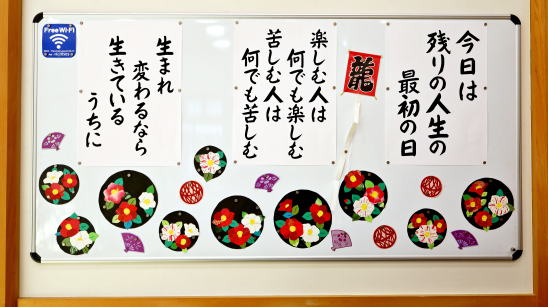 今日は
残りの人生の
最初の日
龍
楽しむ人は
何でも楽しむ
苦しむ人は
何でも苦しむ
生まれ
変わるなら
生きている
うちに
Free Wi-Fi